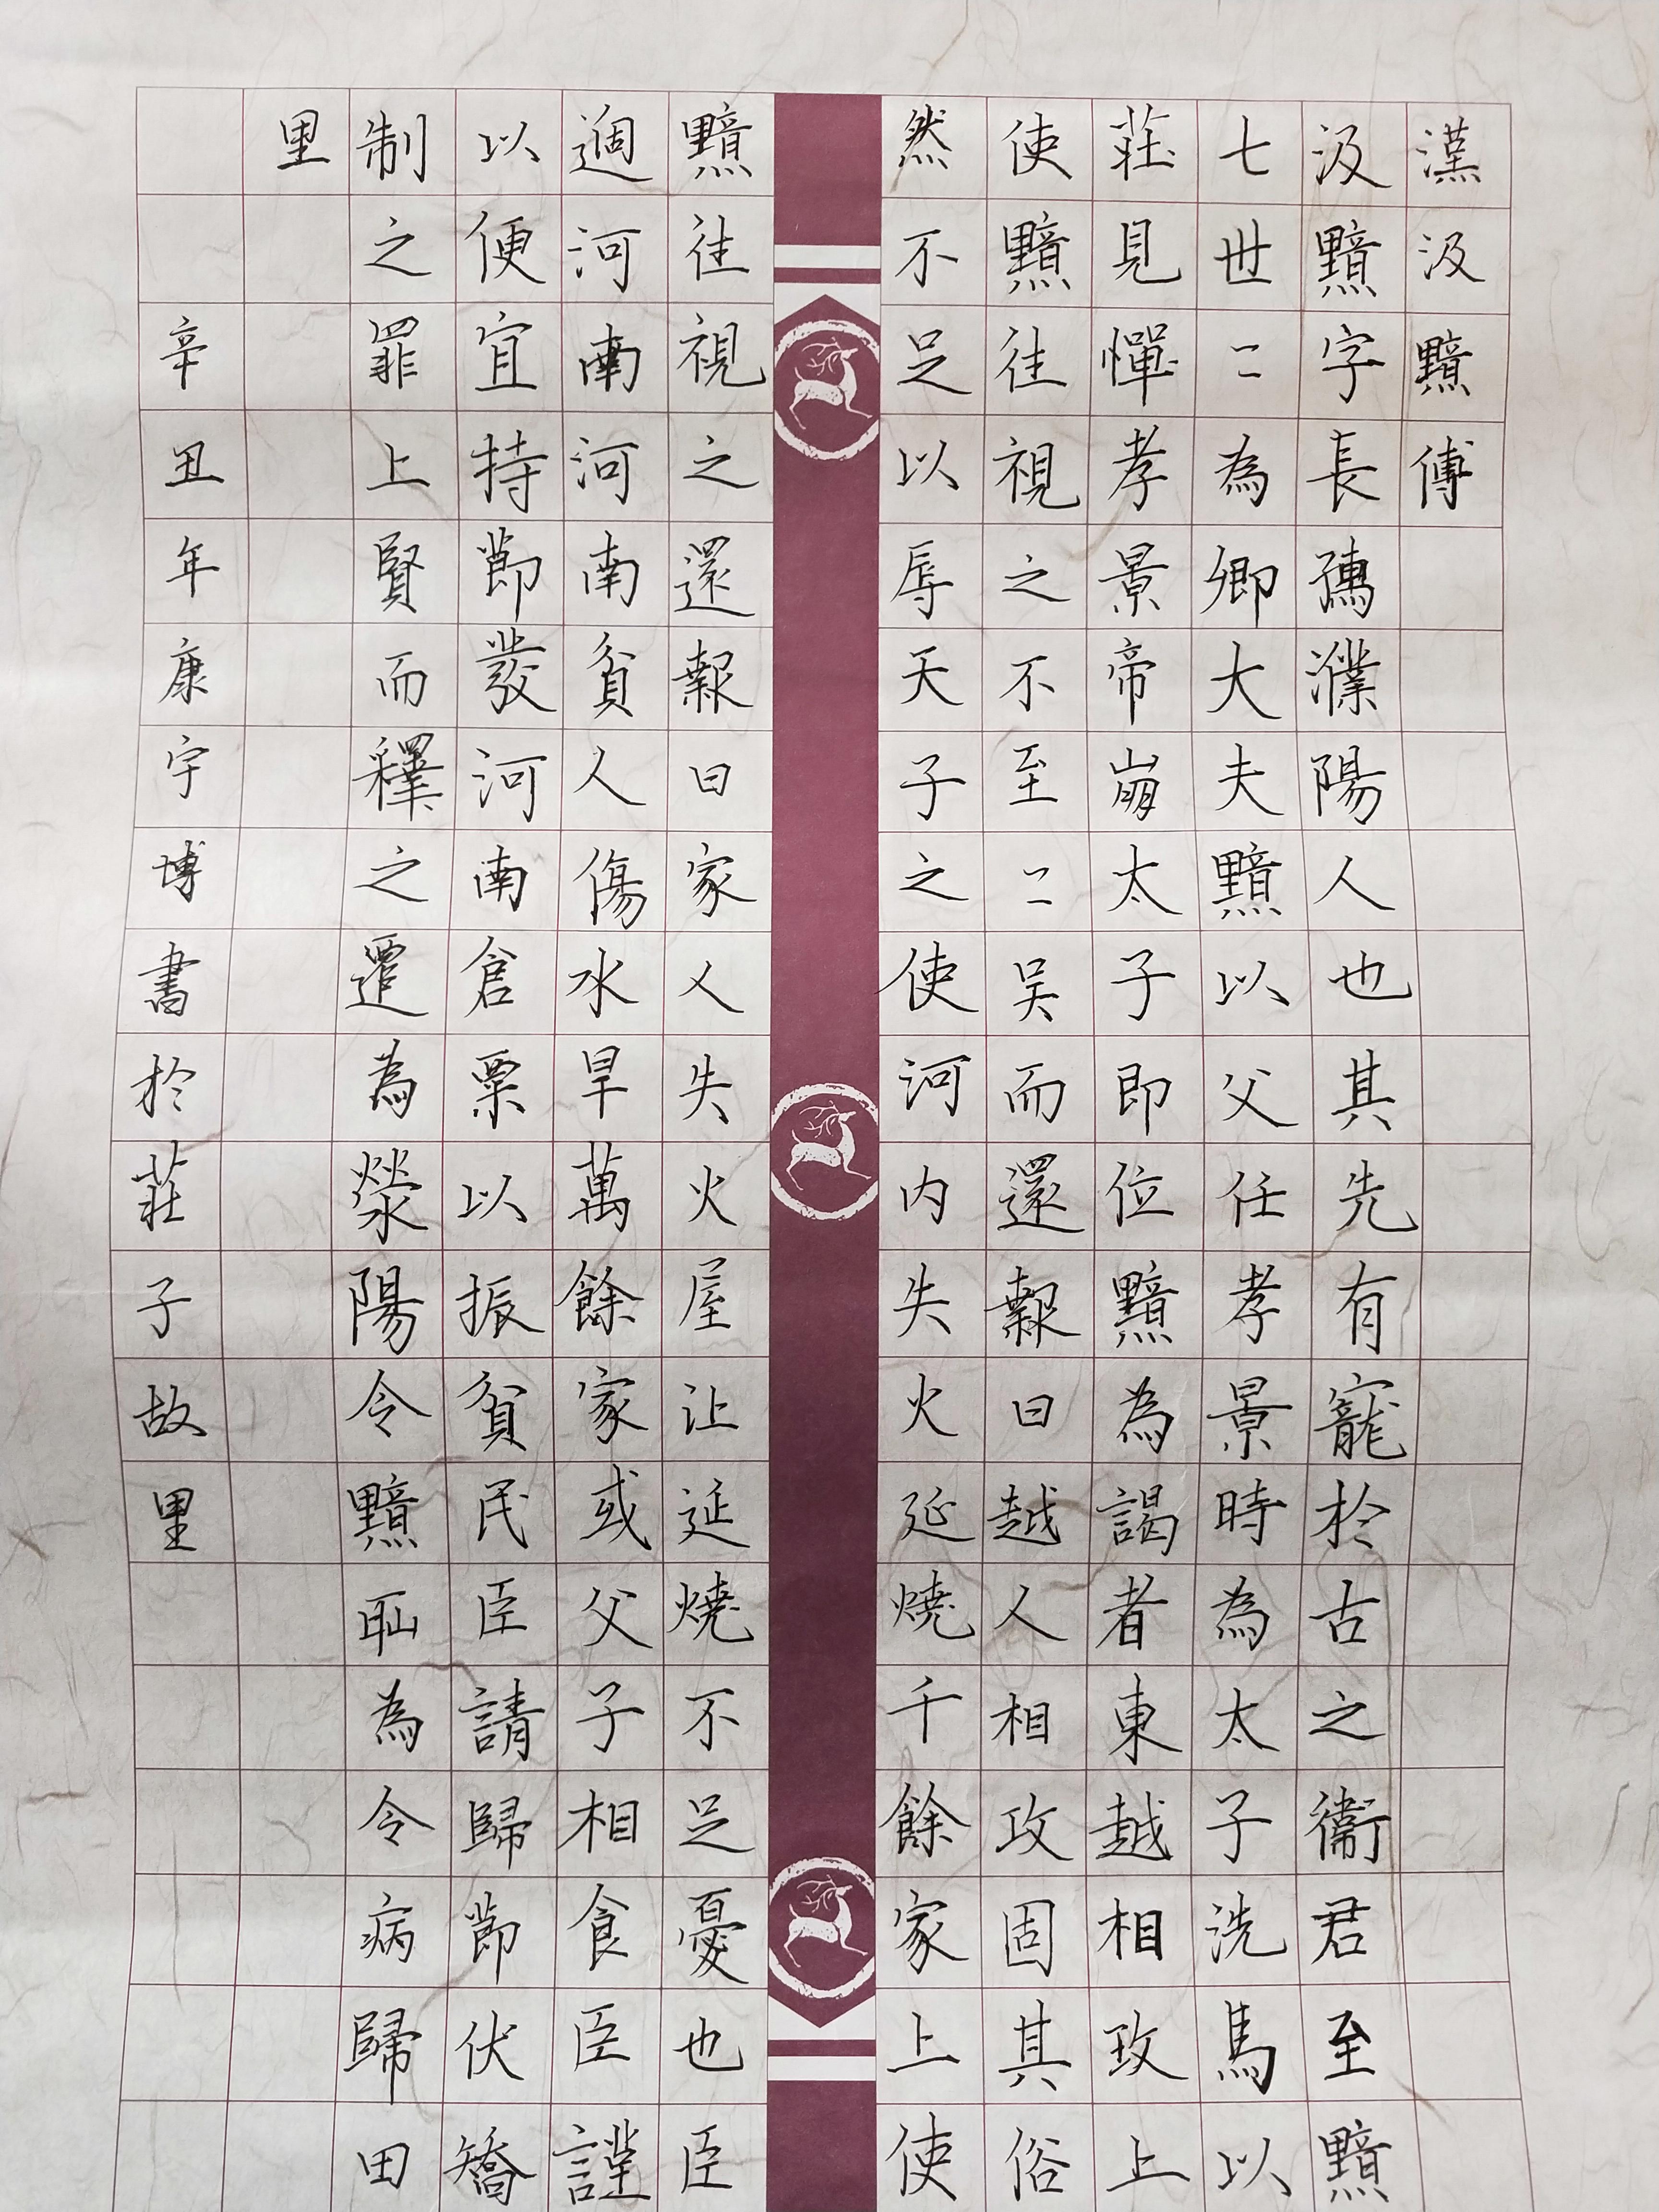 漢汲黯傅
汲黯字長孺濮陽人也其先有寵於古之衞君至黯
七世二為卿大夫黯以父任孝景時為太子洗馬以
莊見憚孝景帝崩太子即位黯為謁者東越相攻上
使黯往視之不至二吴而還報曰越人相攻固其俗
然不足以辱天子之使河内失火延燒千餘家上使
黯往視之還報曰家人失火屋比延燒不足憂也臣
過河南河南貧人傷水旱萬餘家或父子相食臣謹
以便宜持節發河南倉粟以振貧民臣請歸節伏矯
制之罪上賢而釋之遷為滎陽令黯恥為令病歸田
里
辛丑年康宇博書於莊子故里